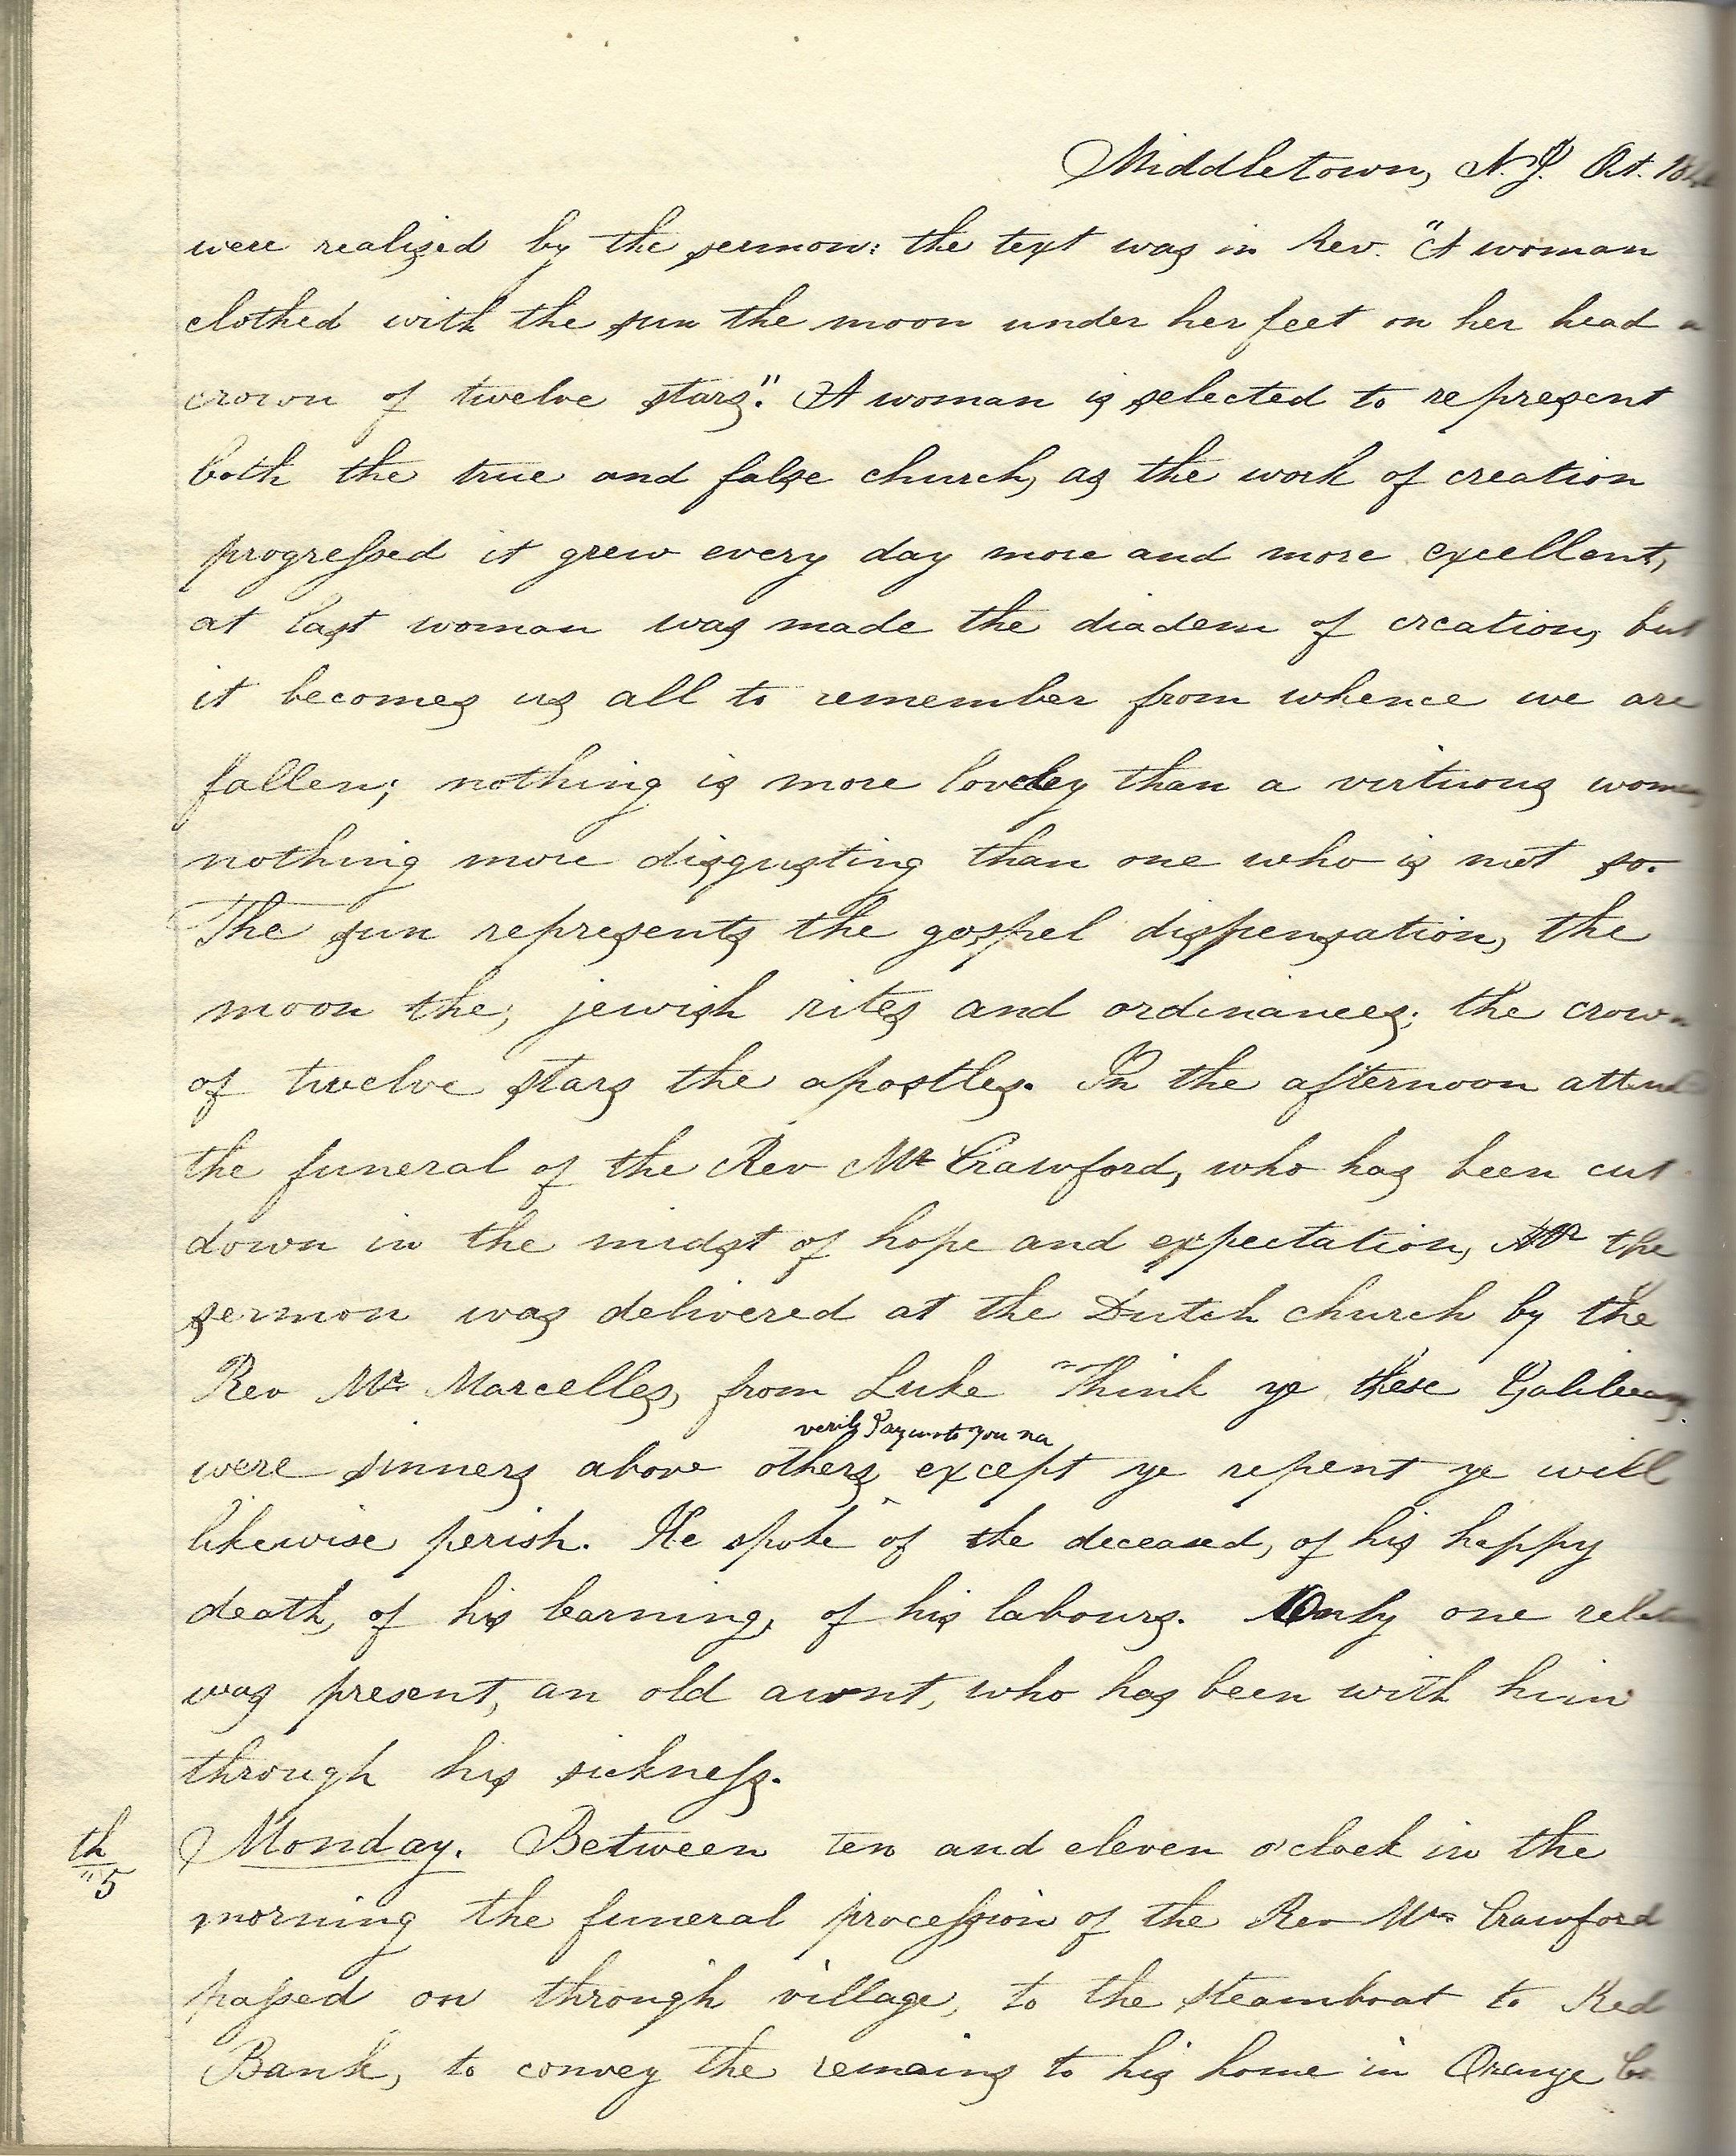 Middletown, N.J. Oct. 18
were realized by the sermon: the text was in Rev. "A woman
clothed with the sun the moon under her feet on her head a
crown of twelve stars". A woman is selected to represent
both the true and false church, as the work of creation
progressed it grew every day more and more excellent,
at last woman was made the diadem of creation, but
it becomes us all to remember from whence we are
fallen; nothing is more loveley than a virtuous
nothing more disgusting than one who is not so.
The sun represents the gospel dispensation, the
moon the, jewish rites and ordinances; the crown
of twelve stars the apostles. In the afternoon
the funeral of the Rev Mr Crawford, who has been cut
down in the midst of hope and expectation, the
sermon was delivered at the Dutch church by the
Rev Mr Marcelles, from Luke "Think ye these Galileans
verily I say unto you na
were sinners above others ^ except ye repent ye will
likewise perish. He spoke of the deceased, of his happy
death, of his learning, of his labours. Only one
was present, an old aunt, who has been with him
through his sickness.
th 5
Monday. Between ten and eleven o'clock in the
morning the funeral procession of the Rev Mr Crawford
passed on through village, to the steamboat to Red
Bank, to convey the remains to his home in Orange Co